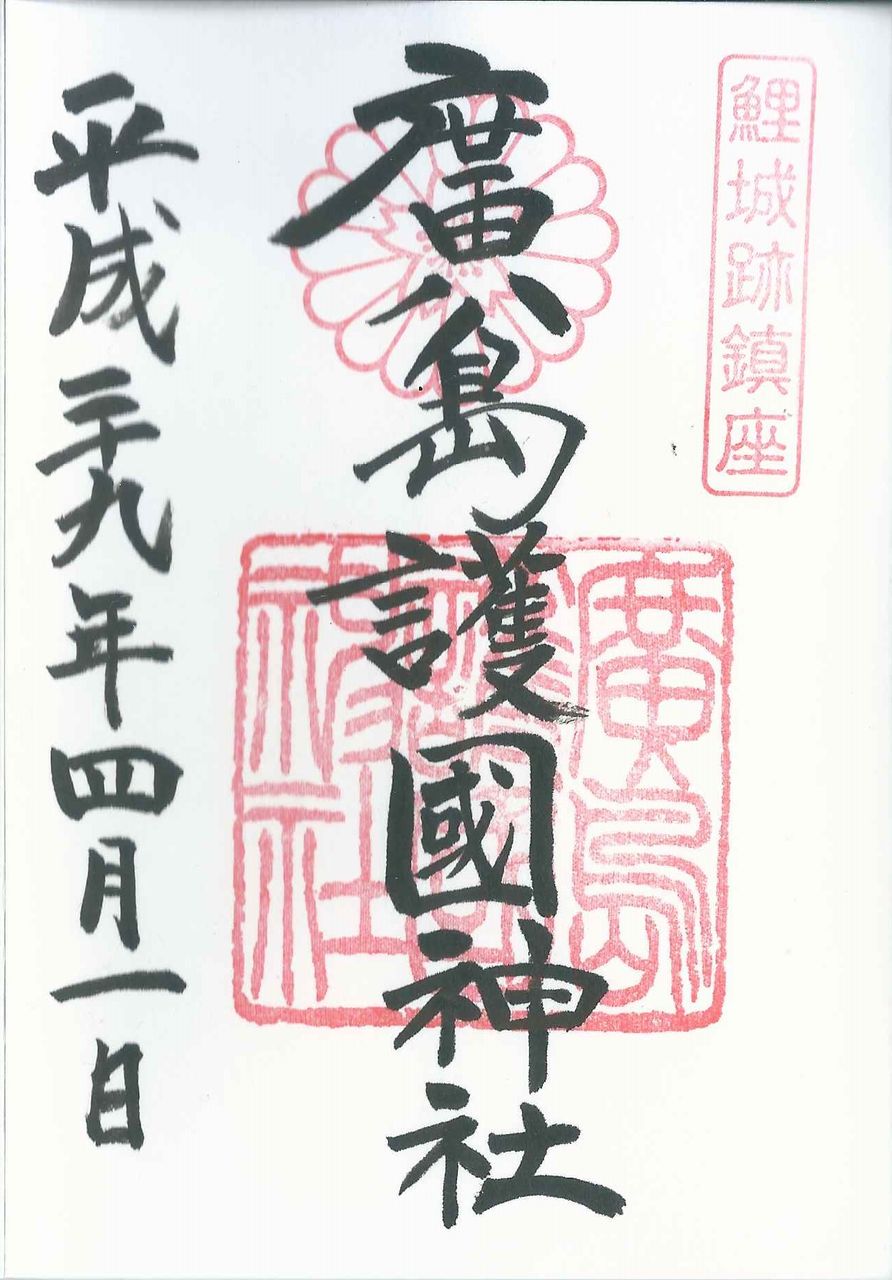 鯉城跡鎮座
廣島護國神社
廣島護國神社
平成二十九年四月一日